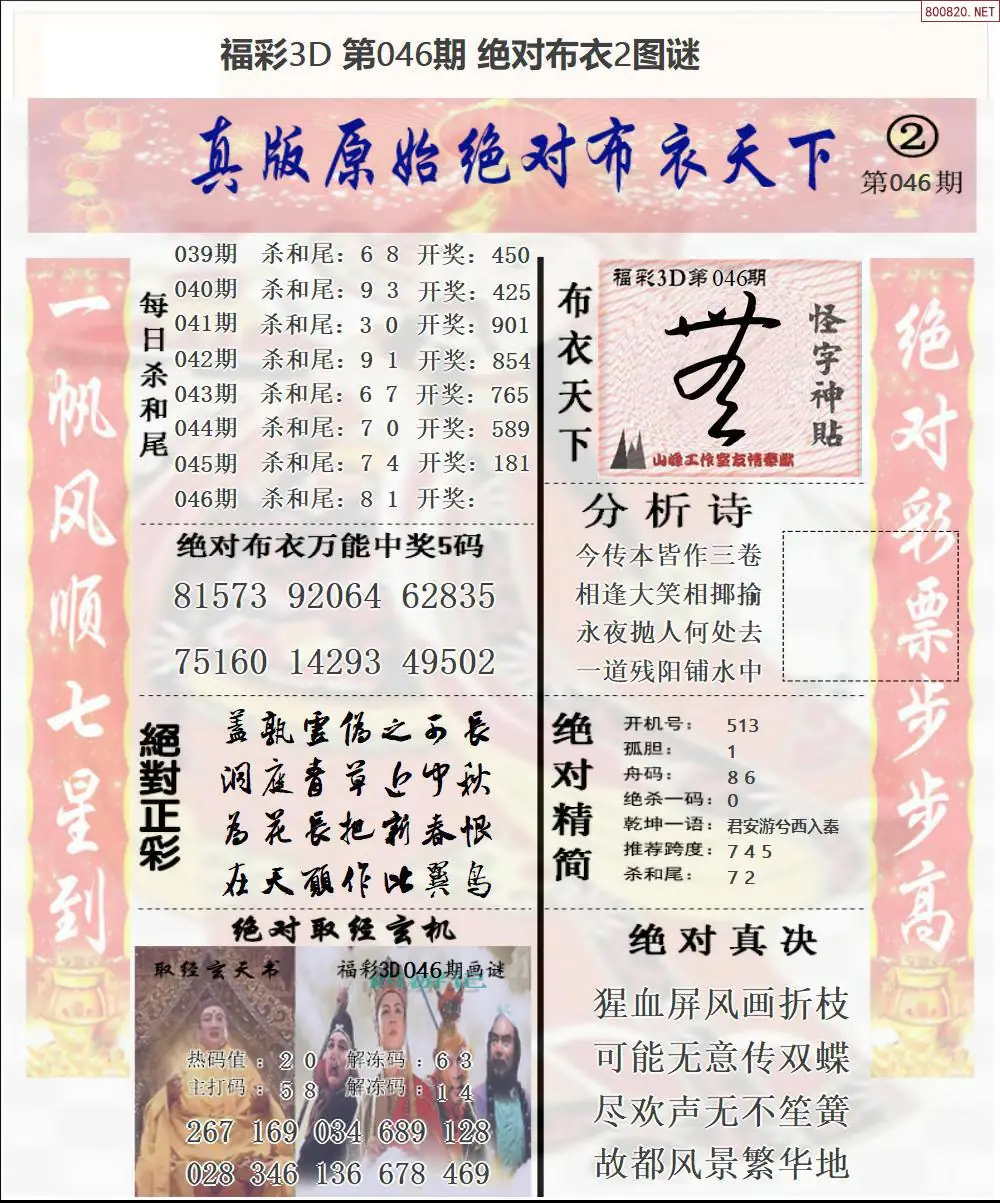 800820.NET
福彩3D 第046期 绝对布衣2图谜
真版原始绝对布衣天下
②
第046期
一帆风顺七星到
每日杀和尾
039期 杀和尾：6 8 开奖：450
040期 杀和尾：9 3 开奖：425
041期 杀和尾：3 0 开奖：901
042期 杀和尾：9 1 开奖：854
043期 杀和尾：6 7 开奖：765
044期 杀和尾：7 0 开奖：589
045期 杀和尾：7 4 开奖：181
046期 杀和尾：8 1 开奖：
绝对布衣万能中奖5码
81573 92064 62835
75160 14293 49502
絕對正彩
盖孰云伪之可長
洞庭青草近中秋
为花長把新春恨
在天願作比翼鸟
绝对取经玄机
取经玄天书
福彩3D046期画谜
热码值：2 0 解冻码：6 3
主打码：5 8 解冻码：1 4
267 169 034 689 128
028 346 136 678 469
布衣天下
福彩3D第046期
怪字神貼
山峰工作室友情奉献
分析诗
今传本皆作三卷
相逢大笑相揶揄
永夜抛人何处去
一道残阳铺水中
绝对精简
开机号：513
孤胆：1
舟码：8 6
绝杀一码：0
乾坤一语：君安游兮西入秦
推荐跨度：7 4 5
杀和尾：7 2
绝对真决
猩血屏风画折枝
可能无意传双蝶
尽欢声无不笙簧
故都风景繁华地
绝对彩票步步高